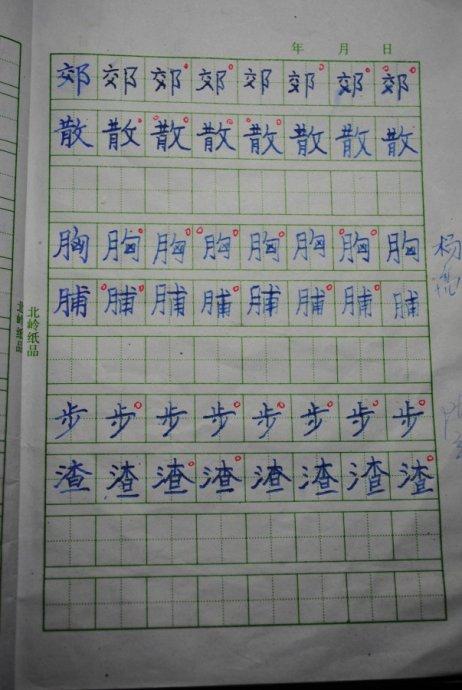 年 月 日
郊 郊 郊 郊 郊 郊 郊 郊
散 散 散 散 散 散 散 散
胸 胸 胸 胸 胸 胸 胸 胸
脯 脯 脯 脯 脯 脯 脯 脯
步 步 步 步 步 步 步 步
渣 渣 渣 渣 渣 渣 渣 渣
北岭纸品
北岭纸品
杨